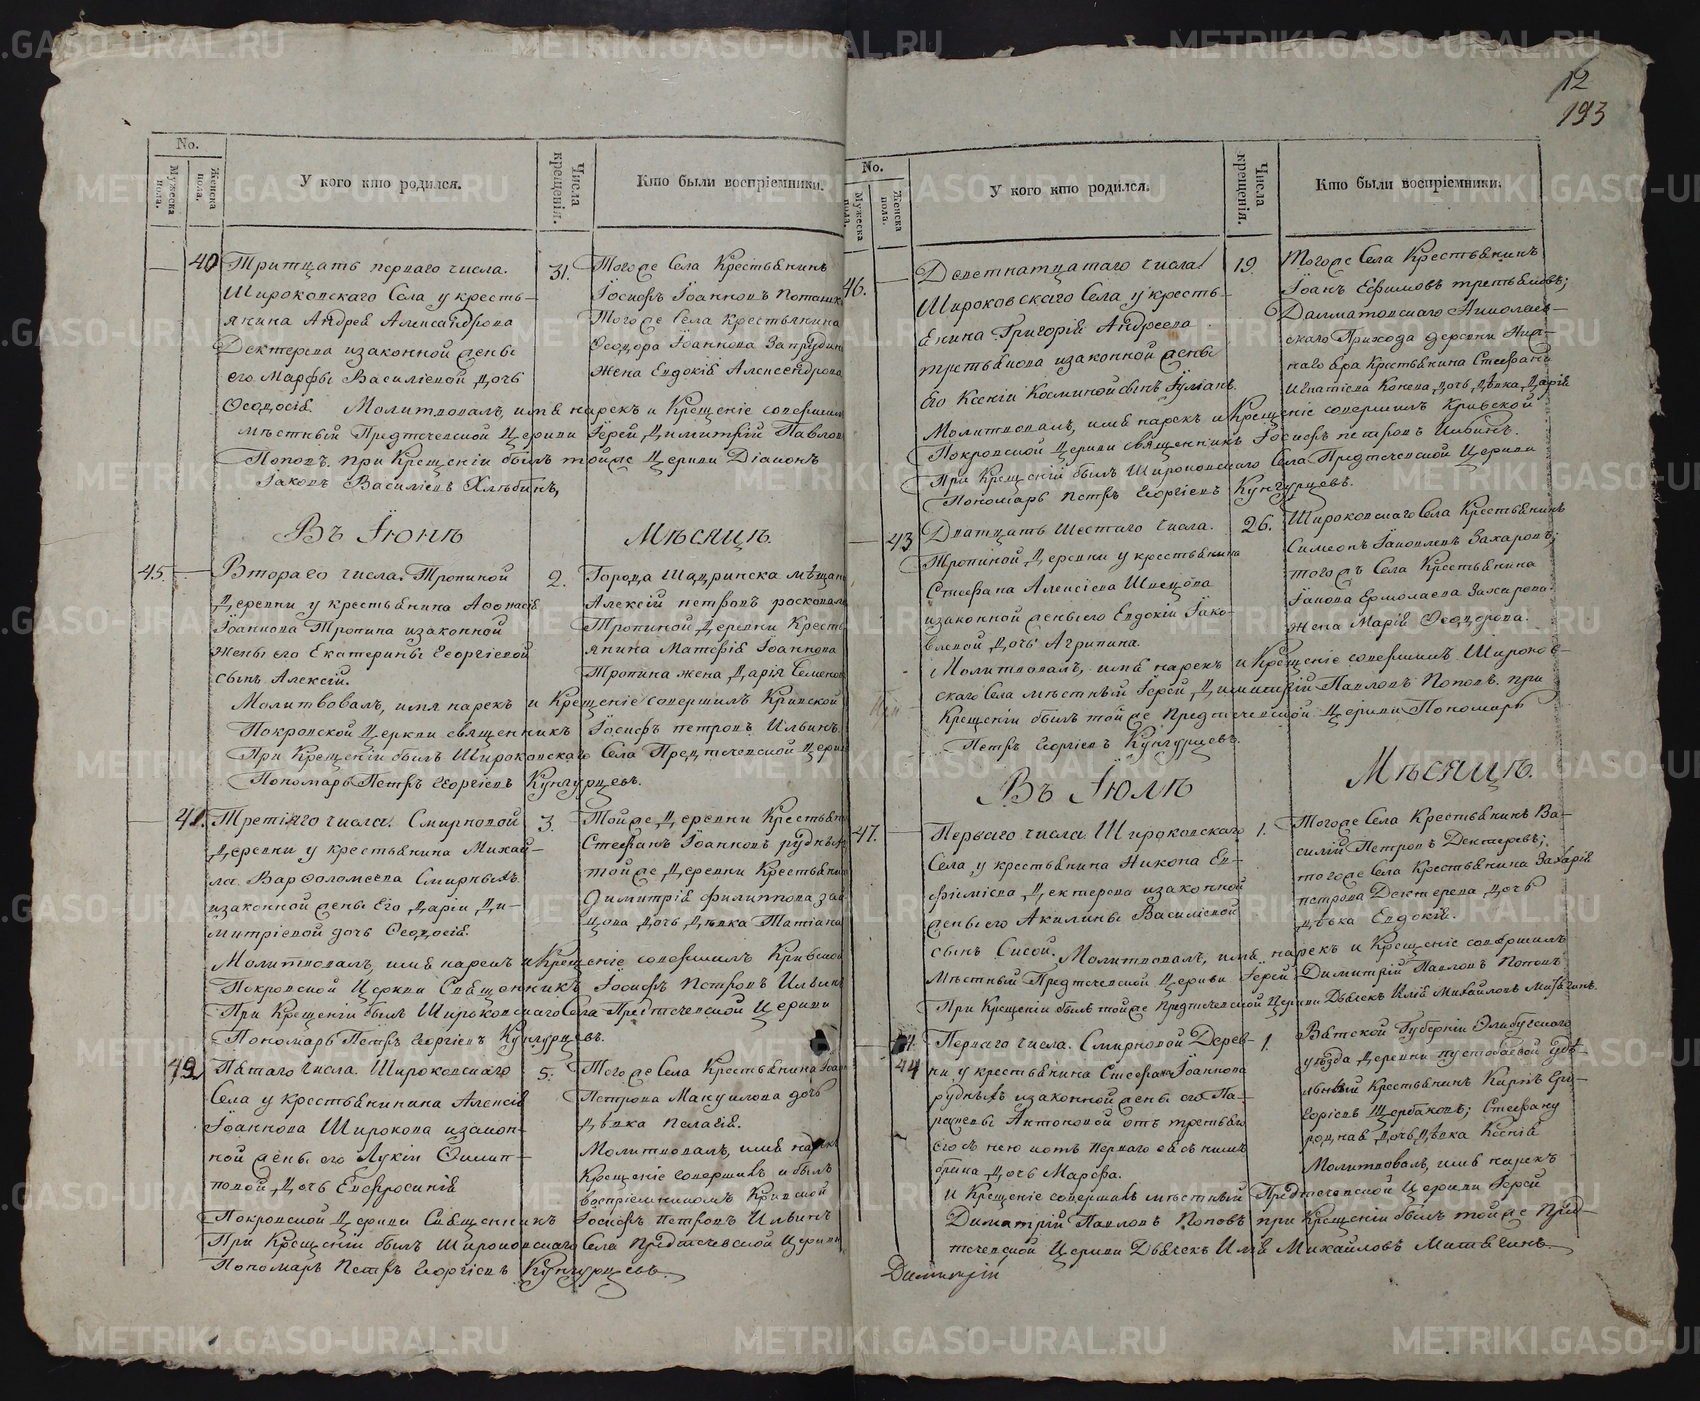 12
193
No.
Мужеска пола.
Женска пола.
У кого кто родился.
Числа крещенія.
Кто были воспріемники.
40
Тритцать перваго числа.
Широковскаго Села у кресть-
янина Андрея Александрова
Дектерева изаконной жены
его Марфы Василіевой дочь
Ѳеодосія.
31.
Тогоже Села Крестьянинъ
Іосифъ Іоанновъ
Тогоже Села крестьянина
Ѳеодора Іоаннова
жена Евдокія Александрова
Молитвовалъ, имя нарекъ и Крещеніе совершилъ
мѣстный Предтечевской Церкви Іерей Димитрій Павловъ
Поповъ. при Крещеніи былъ тойже Церкви Діаконъ
Іаковъ Василіевъ Хлѣбинъ,
Въ Іюнѣ Мѣсяцѣ.
45.
Втораго числа. Тропиной
Деревни у крестьянина Аѳонасія
Іоаннова Тропина изаконной
жены его Екатерины Георгіевой
сынъ Алексій.
2.
Города Шадринска мѣщан
Алексій петровъ
Тропиной Деревни Кресть
янина Матѳія Іоаннова
Тропина жена Дарія Семенов
Молитвовалъ, имя нарекъ и Крещеніе совершилъ Кривской
Покровской Церкви священникъ Іосифъ петровъ Ильинъ.
При Крещеніи былъ Широковскаго Села Предтечевской Церкви
Пономарь Петръ Георгіевъ Кунгурцевъ.
41.
Третіяго числа. Смирновой
Деревни у крестьянина Михай-
ла Варѳоломеева Смирныхъ
изаконной жены Его Даріи Ди-
митріевой дочь Ѳеодосія.
3.
Тойже Деревни Крестьянинъ
Стефанъ Іоанновъ рудныхъ
тойже Деревни Крестьянина
Димитрія филиппова
дочь Дѣвка Татіана
Молитвовалъ, имя нарекъ и Крещеніе совершилъ Кривской
Покровской Церкви Священникъ Іосифъ Петровъ Ильинъ
При Крещеніи былъ Широковскаго Села Предтечевской Церкви
Пономарь Петръ Георгіевъ Кунгурцевъ.
42
Пятаго числа. Широковскаго
Села у крестьянинина Алексія
Іоаннова Широкова изакон-
ной жены его Лукіи Филип-
повой Дочь Евфросинія
5.
Тогоже Села Крестьянина
Петрова Мануилова дочь
Дѣвка Пелагія.
Молитвовалъ, имя нарекъ
Крещеніе совершилъ и былъ
воспріемникомъ Кривской
Покровской Церкви Священникъ Іосифъ петровъ Ильинъ
При Крещеніи былъ Широковскаго Села Предтечевской Церкви
Пономарь Петръ Георгіевъ Кунгурцевъ.
No.
Мужеска пола.
Женска пола.
У кого кто родился.
Числа крещенія.
Кто были воспріемники.
46.
Деветнатцатаго числа
Широковскаго Села у кресть-
янина Григорія Андреева
третьякова изаконной жены
Его Ксеніи Косминой сынъ Іуліанъ.
19
Тогоже Села Крестьянинъ
Іоанъ Ефимовъ третьяковъ;
Далматовскаго Николаев-
скаго Прихода деревни
Крестьянина Стефана
Игнатіева Конева дочь Дѣвка Дарія
Молитвовалъ, имя нарекъ и Крещеніе совершилъ Кривской
Покровской Церкви священникъ Іосифъ петровъ Ильинъ.
При Крещеніи былъ Широковскаго Села Предтечевской Церкви
Пономарь петръ Георгіевъ Кунгурцевъ.
43
Дватцать Шестаго числа.
Тропиной Деревни у крестьянина
Стефана Алексіева Швецова
изаконной жены его Евдокіи Іако-
влевой Дочь Агрипина.
26.
Широковскаго Села Крестьянинъ
Симеонъ Іаковлевъ Захаровъ;
тогожъ Села Крестьянина
Іакова Ермолаева Захарова
жена Марія Ѳеодорова.
Молитвовалъ, имя нарекъ и Крещеніе совершилъ Широков-
скаго Села мѣстный Іерей Димитрій Павловъ Поповъ. при
Крещеніи былъ тойже Предтечевской Церкви Пономарь
Петръ Георгіевъ Кунгурцевъ.
Въ Іюлѣ Мѣсяцѣ.
47.
Перваго числа. Широковскаго
Села, у крестьянина Никона Ев-
фиміева Дектерева изаконной
жены его Акилины Василіевой
сынъ Сисой.
1.
Тогоже Села Крестьянинъ Ва-
силій Петровъ Дектеревъ;
тогоже Села Крестьянина Захарія
петрова Дектерева Дочь
дѣвка Евдокія.
Молитвовалъ, имя нарекъ и Крещеніе совершилъ
Мѣстный Предтечевской Церкви Іерей Димитрій Павловъ Поповъ
При Крещеніи былъ тойже Предтечевской Церкви Дьячекъ Илія Михайловъ Митягинъ.
44
Перваго числа. Смирновой Дерев-
ни, у крестьянина Стефана Іоаннова
рудныхъ изаконной жены его Па-
расевы Антоновой отъ третьяго
его съ нею иотъ перваго ея съ нимъ
брака Дочь Марѳа.
1.
Вятской Губерніи Елабугскаго
уѣзда Деревни пустобаевой удѣ-
льный Крестьянинъ Карпъ Еги-
оріевъ Щербаковъ; Стефану
роднав дочь Дѣвка Ксенія
Молитвовалъ, имя нарекъ
и Крещеніе совершилъ мѣстный Предтечевской Церкви Іерей
Димитрій Павловъ Поповъ при Крещеніи былъ тойже Пред-
течевской Церкви Дьячекъ Илія Михайловъ Митягинъ.
Димитрій
METRIKI.GASO-URAL.RU